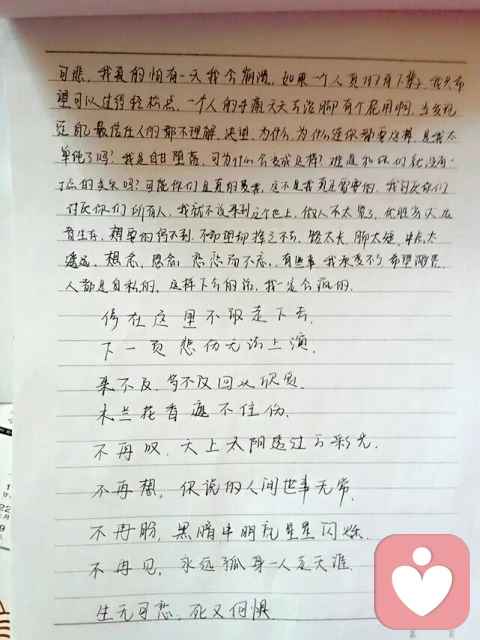 可悲,我真的怕有一天我会崩溃,如果一个人真的有下辈子我只希
望可以过得轻松点,一个人的
最信任人的都不理解,失望,为什么,为什么连你都要这样,是我太
单纯了吗?我是自甘堕落,可为什么会变成这样?难道和你们就没有一
点的关系吗?可能你们是真的爱我,这不是我真正需要的,我讨厌你们
讨厌你们所有人,我就不该来到这个世上,做人不太累了,优胜劣汰,
想要的得不到,不希望却挥之不去,路太长,脚太短,
想念,思念,恋恋而不忘,有些事我承受不了,希望
人都是自私的,这样下去的话,我一定会疯的。
停在这里不敢走下去,
下一页悲伤无法上演,
来不及,等不及回头欣赏,
木兰花香遮不住伤,
不再叹,天上太阳透过云彩光,
不再想,你说的人间世事无常,
不再盼,黑暗中明亮星星闪烁,
不再见,永远孤身一人走天涯,
生无可恋,死又何惧
第 页